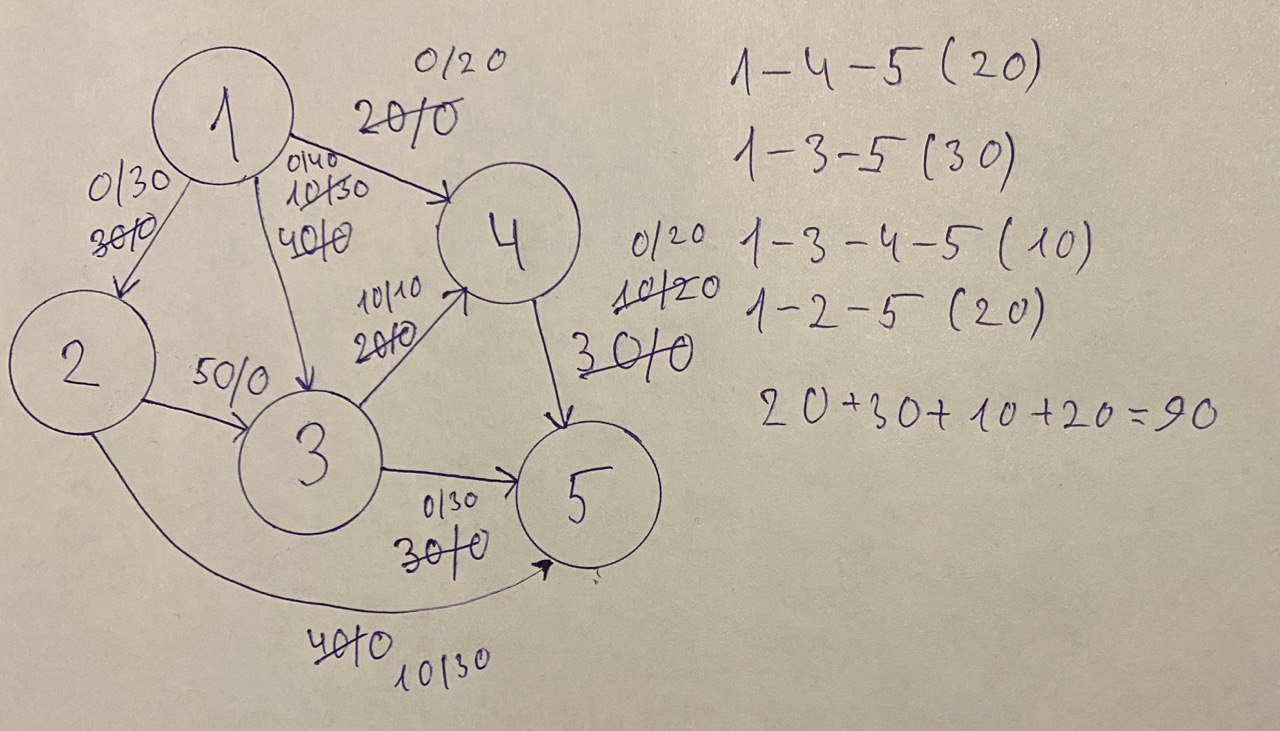 0/20
20/0
1
0/30
30/0
0/40
10/30
40/0
4
0/20
10/20
30/0
10/10
20/0
2
50/0
3
5
0/30
30/0
40/0
10/30
1-4-5 (20)
1-3-5 (30)
1-3-4-5 (10)
1-2-5 (20)
20+30+10+20=90